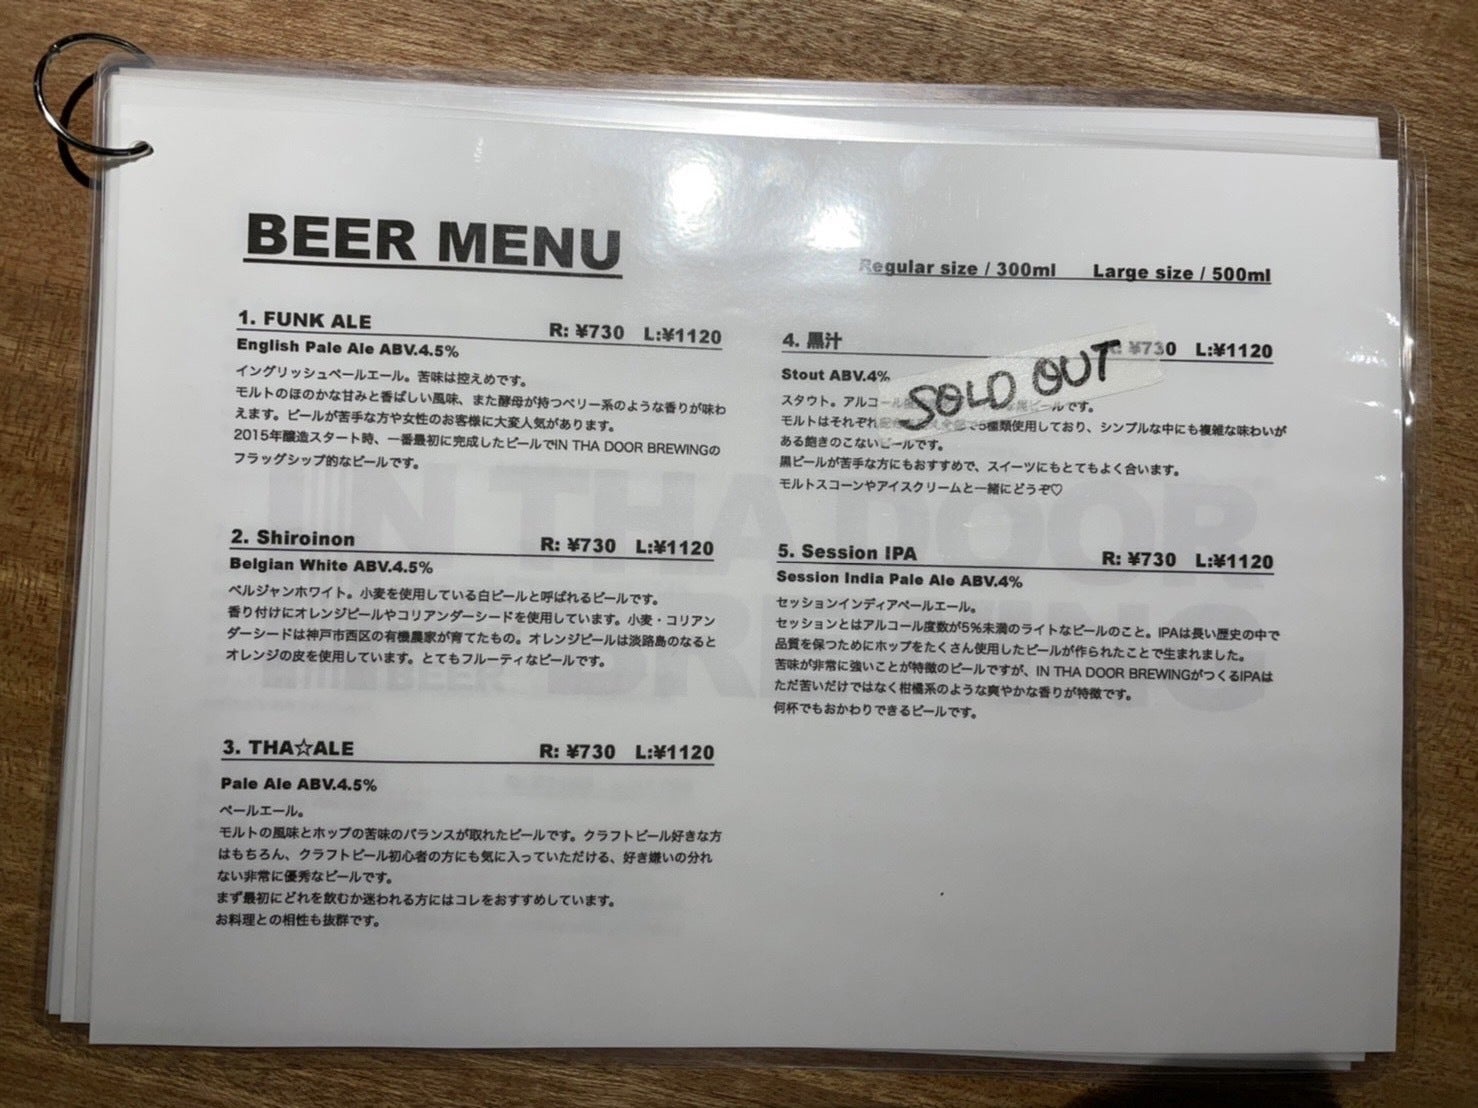 BEER MENU
Regular size / 300ml Large size / 500ml
1. FUNK ALE R: ¥730 L:¥1120
English Pale Ale ABV.4.5%
イングリッシュペールエール。苦味は控えめです。
モルトのほのかな甘みと香ばしい風味、また酵母が持つベリー系のような香りが味わ
えます。ビールが苦手な方や女性のお客様に大変人気があります。
2015年醸造スタート時、一番最初に完成したビールでIN THA DOOR BREWINGの
フラッグシップ的なビールです。
2. Shiroinon R: ¥730 L:¥1120
Belgian White ABV.4.5%
ベルジャンホワイト。小麦を使用している白ビールと呼ばれるビールです。
香り付けにオレンジピールやコリアンダーシードを使用しています。小麦・コリアン
ダーシードは神戸市西区の有機農家が育てたもの。オレンジピールは淡路島のなると
オレンジの皮を使用しています。とてもフルーティなビールです。
3. THA☆ALE R: ¥730 L:¥1120
Pale Ale ABV.4.5%
ペールエール。
モルトの風味とホップの苦味のバランスが取れたビールです。クラフトビール好きな方
はもちろん、クラフトビール初心者の方にも気に入っていただける、好き嫌いの分れ
ない非常に優秀なビールです。
まず最初にどれを飲むか迷われる方にはコレをおすすめしています。
お料理との相性も抜群です。
4. 黒汁 R: ¥730 L:¥1120
SOLD OUT
Stout ABV.4%
スタウト。アルコール ビールです。
モルトはそれぞれ 5種類使用しており、シンプルな中にも複雑な味わいが
ある飽きのこないビールです。
黒ビールが苦手な方にもおすすめで、スイーツにもとてもよく合います。
モルトスコーンやアイスクリームと一緒にどうぞ♡
5. Session IPA R: ¥730 L:¥1120
Session India Pale Ale ABV.4%
セッションインディアペールエール。
セッションとはアルコール度数が5%未満のライトなビールのこと。IPAは長い歴史の中で
品質を保つためにホップをたくさん使用したビールが作られたことで生まれました。
苦味が非常に強いことが特徴のビールですが、IN THA DOOR BREWINGがつくるIPAは
ただ苦いだけではなく柑橘系のような爽やかな香りが特徴です。
何杯でもおかわりできるビールです。
IN THA DOOR
BREWING